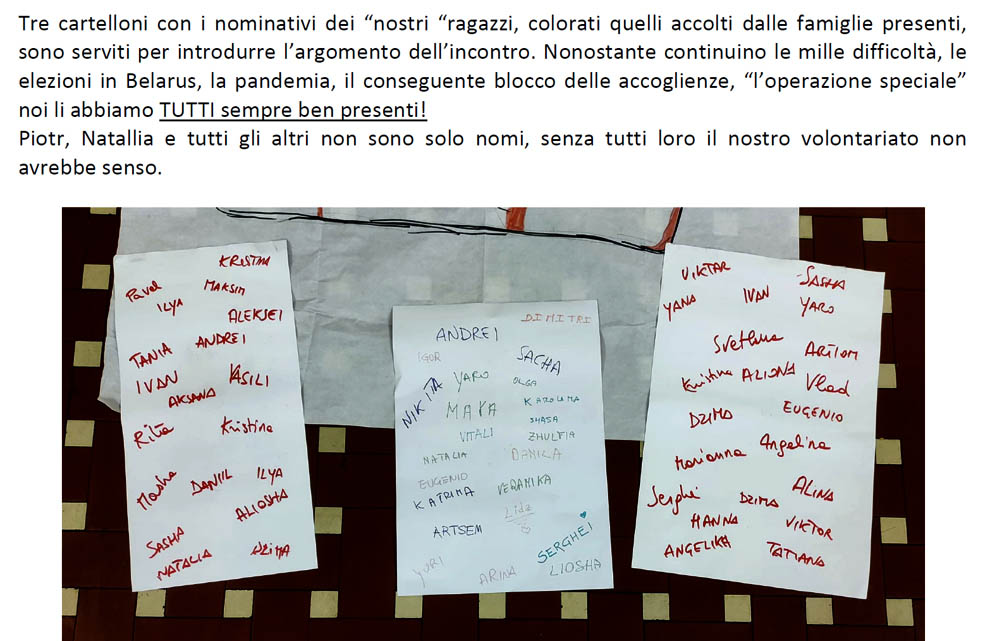 Tre cartelloni con i nominativi dei “nostri “ragazzi, colorati quelli accolti dalle famiglie presenti,
sono serviti per introdurre l’argomento dell’incontro. Nonostante continuino le mille difficoltà, le
elezioni in Belarus, la pandemia, il conseguente blocco delle accoglienze, “l’operazione speciale”
noi li abbiamo TUTTI sempre ben presenti!
Piotr, Natallia e tutti gli altri non sono solo nomi, senza tutti loro il nostro volontariato non
avrebbe senso.
KRISTINA
Pavel MAKSIM
ILYA
ALEKSEI
TANIA ANDREI
IVAN VASILI
AKSANA
Rita Kristina
Masha DANIIL ILYA
ALIOSHA
SASHA
NATALIA DZIMA
DIMITRI
ANDREI
IGOR SACHA
NIKITA YARO OLGA
MAYA KAROLINA
SHASA
VITALI ZHULFIA
NATALIA DANILA
EUGENIO
KATRINA VERANIKA
Lida
ARTSEM
SERGHEI
YURI ARINA LIOSHA
VIKTAR SASHA
YANA IVAN YARO
Svetlana ARTIOM
Kristina ALIONA Vlad
DZIMA EUGENIO
Marianna Angelina
Serghei DZIMA ALINA
HANNA VIKTOR
ANGELIKA TATIANA